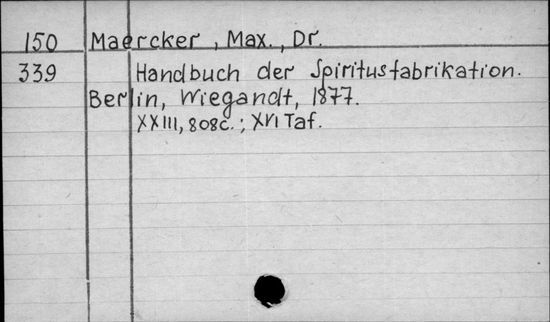 150 Maercker, Max., Dr.
339 Handbuch der Spiritusfabrikation.
Berlin, Wiegandt, 1877.
XXIII, 808c.; XVI Taf.